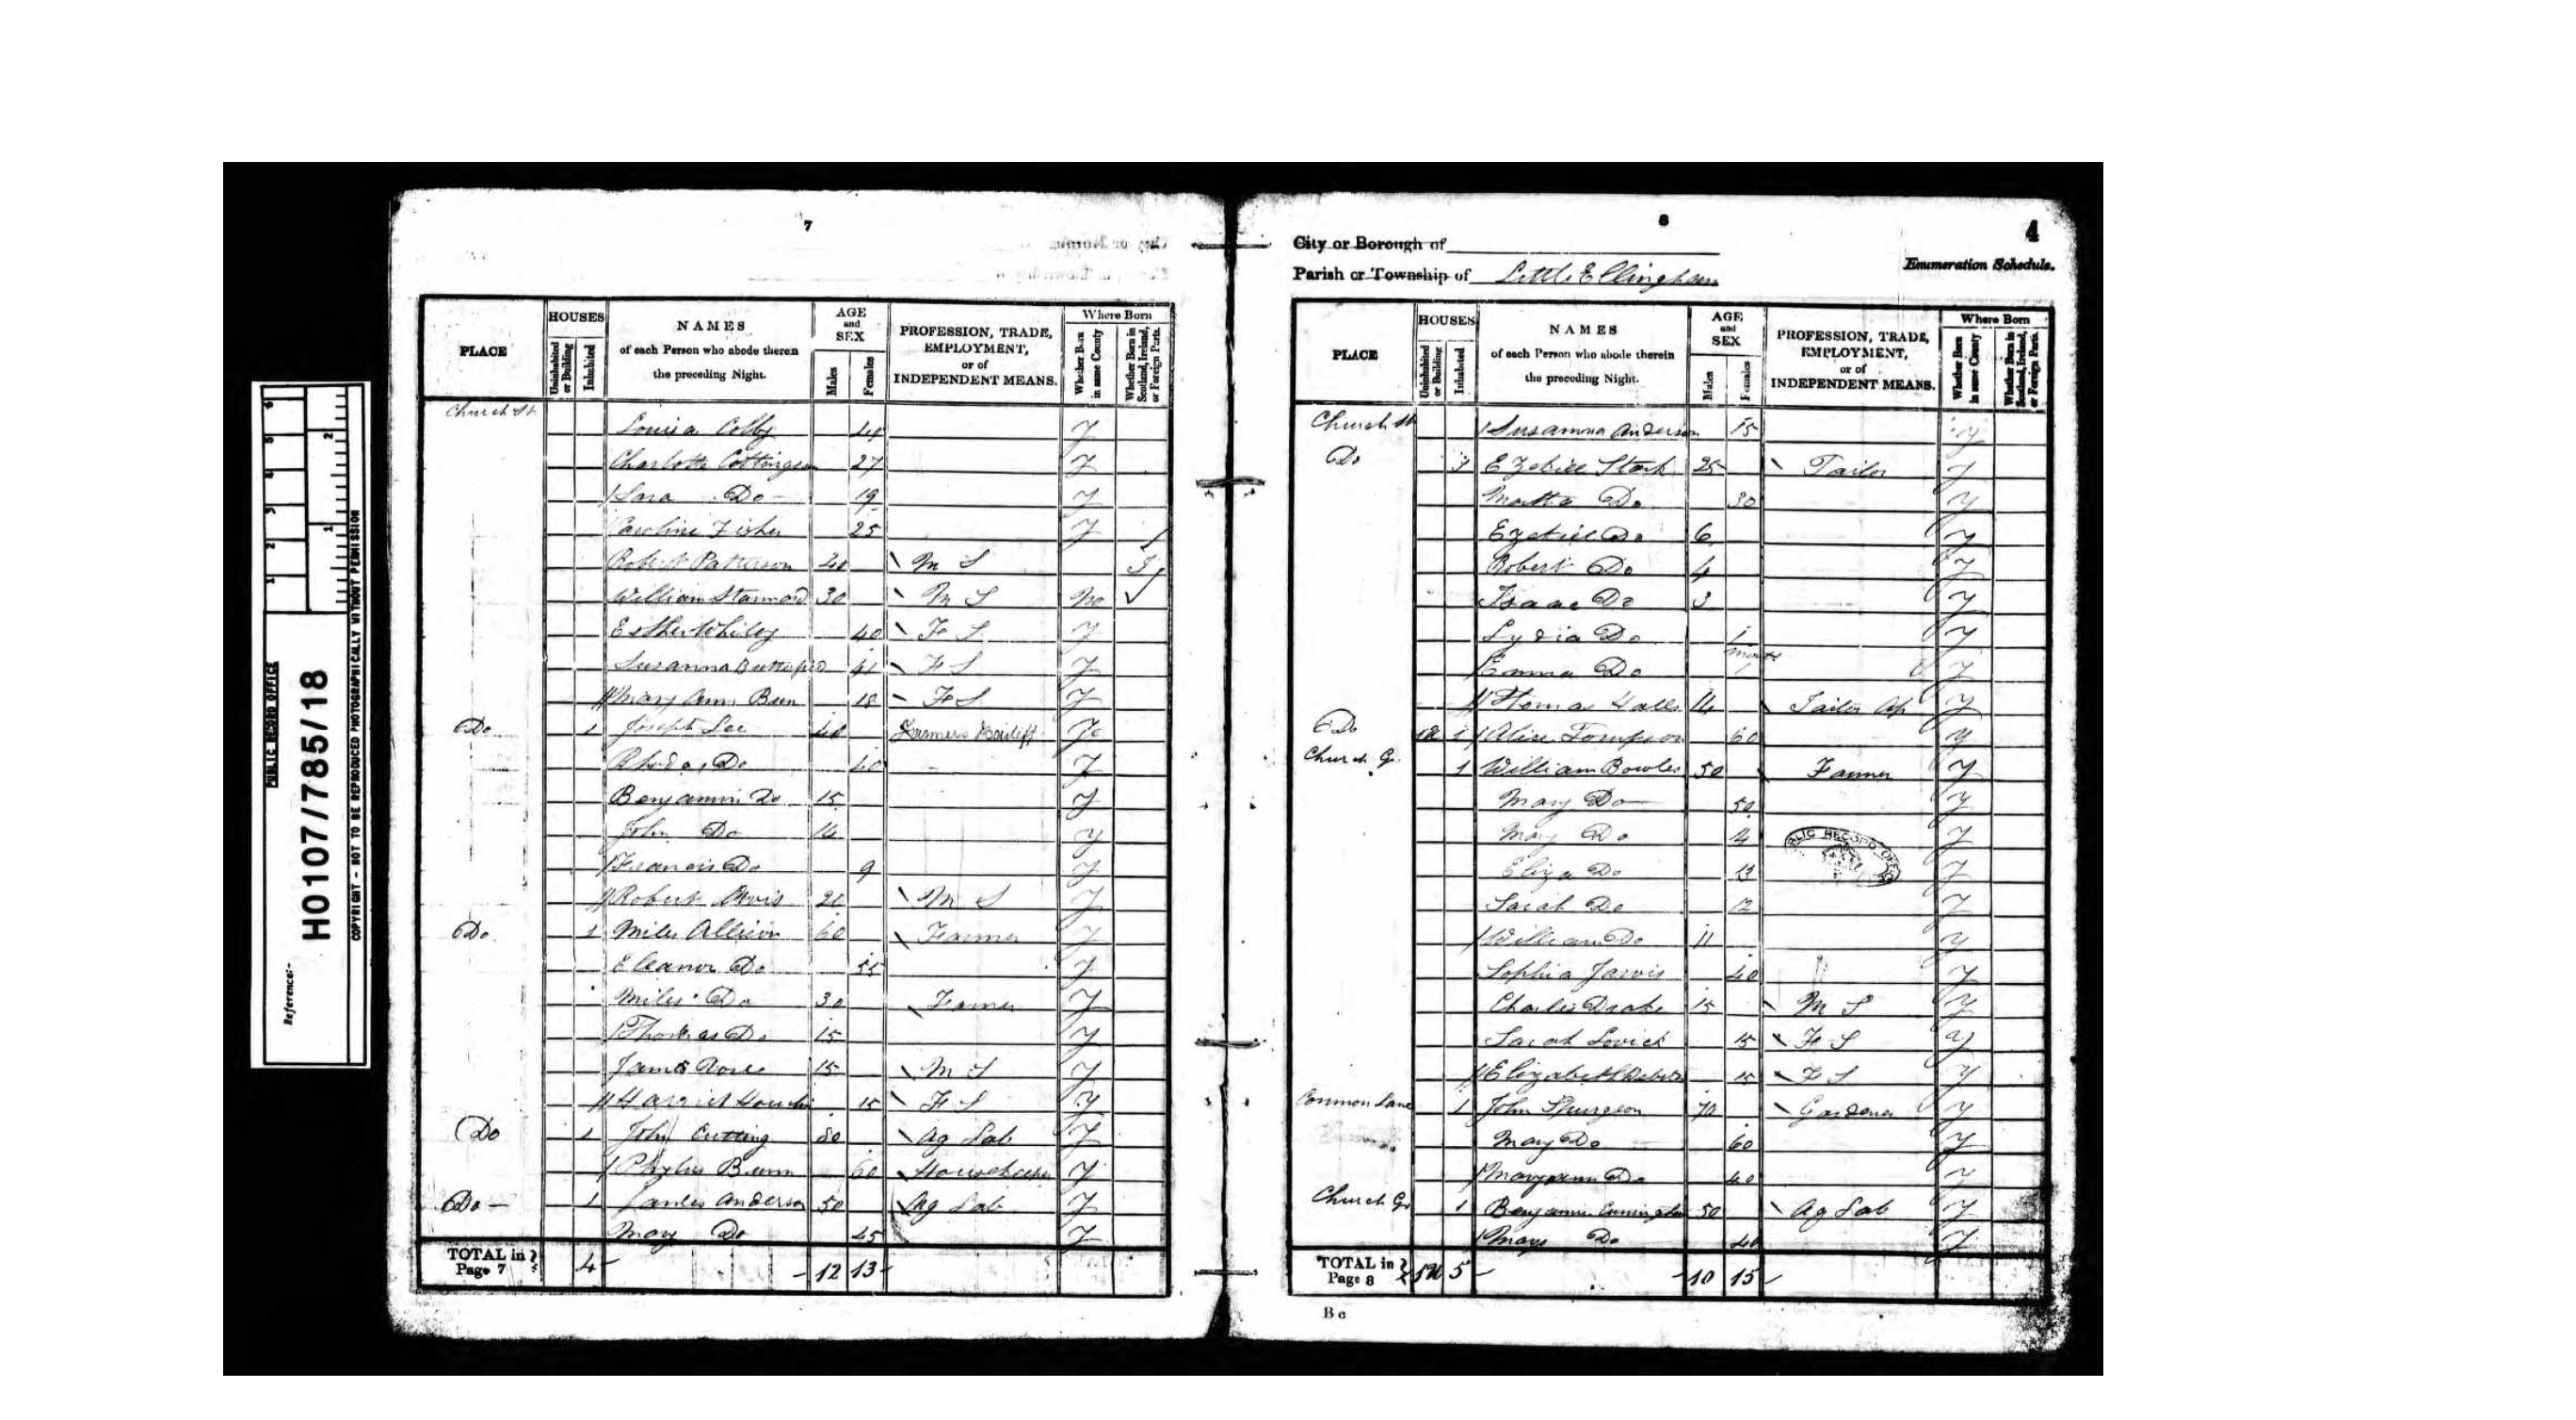 PUBLIC RECORD OFFICE
Reference:-
HO107/785/18
COPYRIGHT - NOT TO BE REPRODUCED PHOTOGRAPHICALLY WITHOUT PERMISSION
7
PLACE
HOUSES
Uninhabited or Building
Inhabited
NAMES of each Person who abode therein the preceding Night.
AGE and SEX
Males
Females
PROFESSION, TRADE, EMPLOYMENT, or of INDEPENDENT MEANS.
Where Born
Whether Born in same County
Whether Born in Scotland, Ireland, or Foreign Parts.
Church St
Louisa Colby Y
Charlotte 27 Y
Sara Do 19 Y
Caroline Fisher 25 Y
Robert Patterson 40 M S
William Stannard 30 M S No
Esther Whiley 40 F S Y
Susanna 41 F S Y
Mary Ann Bun 18 F S Y
Do 1 Joseph Lee 40 Farmers Bailiff
Rhoda Do 40 Y
Benjamin Do 15 Y
John Do 14 Y
Francis Do 9 Y
Robert M S Y
Do 1 Miles Allison 60 Farmer Y
Eleanor Do 55 Y
Miles Do 30 Farmer Y
Thomas Do 15 Y
James Rose 15 M S Y
Harriet 15 F S Y
Do 1 John Cutting 80 Ag Lab Y
Phylis Bunn 60 Y
Do 1 James Anderson 50 Ag Lab Y
Mary Do 45 Y
TOTAL in Page 7 4 12 13
8
4
City or Borough of
Parish or Township of Little Ellingham
Enumeration Schedule.
PLACE
HOUSES
Uninhabited or Building
Inhabited
NAMES of each Person who abode therein the preceding Night.
AGE and SEX
Males
Females
PROFESSION, TRADE, EMPLOYMENT, or of INDEPENDENT MEANS.
Where Born
Whether Born in same County
Whether Born in Scotland, Ireland, or Foreign Parts.
Church St Susanna Anderson 15 Y
Do Stark 25 Tailor Y
Do 30 Y
Ezekiel Do 6 Y
Robert Do 4 Y
Isaac Do 3 Y
Lydia Do Y
Emma Do Y
Thomas 14 Tailor Ap Y
Do 1 Alice Tompson 60 Y
Church G. 1 William Bowles 50 Farmer Y
Mary Do 50 Y
Mary Do 14 Y
Eliza Do 13 Y
Sarah Do 12 Y
William Do 11 Y
Sophia Jarvis 40 Y
Charles Drake 15 M S Y
Sarah Lovick 15 F S Y
Elizabeth 15 F S Y
Common Lane 1 John Spurgeon 70 Gardener Y
Mary Do 60 Y
Maryann Do 40 Y
Church Gr 1 Benjamin 50 Ag Lab Y
Mary Do 40 Y
TOTAL in Page 8 5 10 15
B c